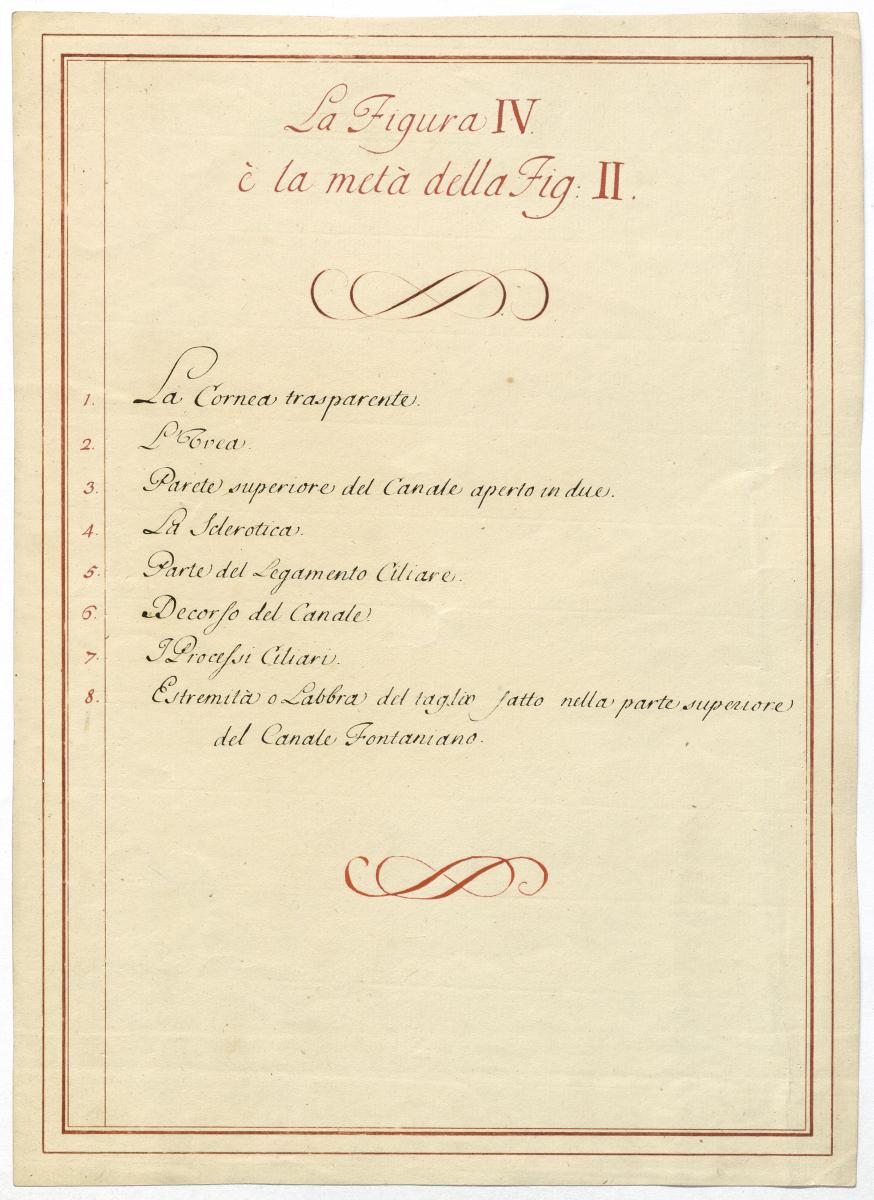 La Figura IV.
è la metà della Fig: II.
1. La Cornea trasparente.
2. L'Uvea.
3. Parete superiore del Canale aperto in due.
4. La Sclerotica.
5. Parte del Legamento Ciliare.
6. Decorso del Canale.
7. I Processi Ciliari.
8. Estremità o Labbra del taglio fatto nella parte superiore
del Canale Fontaniano.